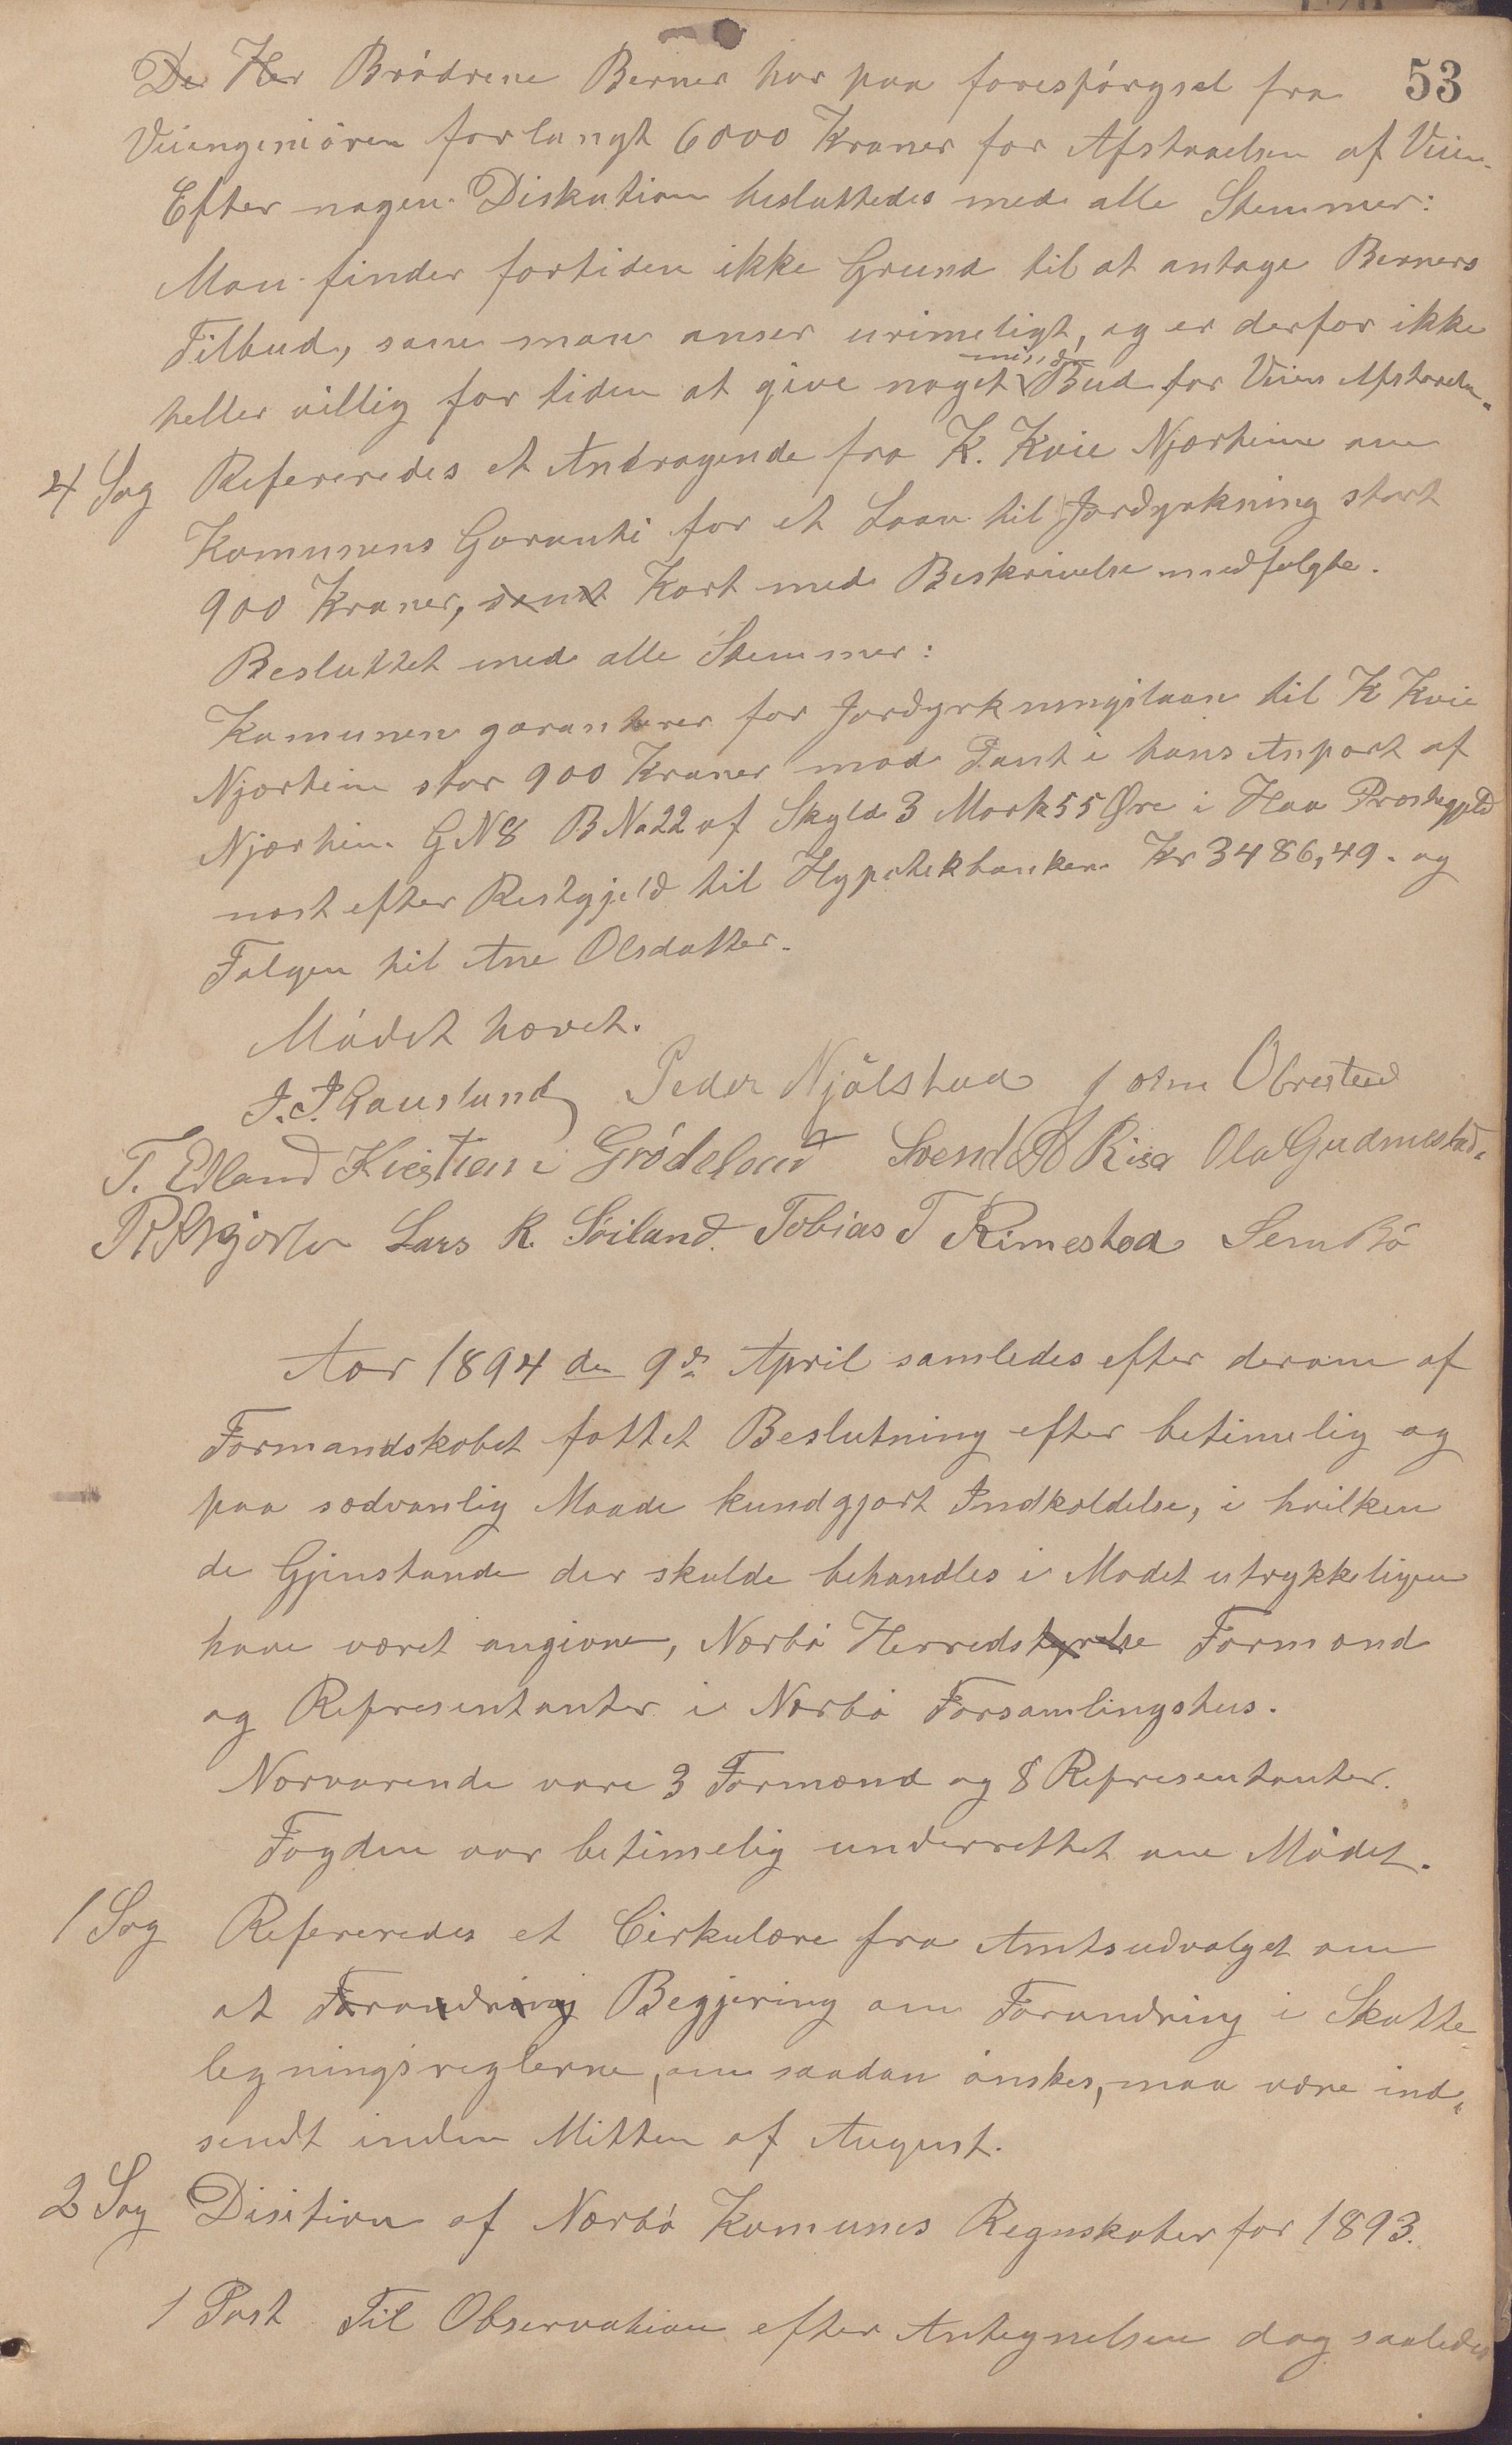 53
De Her Brødrene Berner har paa forespørgsel fra
Veiingeniøren forlangt 6000 Kroner for Afstaaelsen af Veien.
Efter nogen Diskution besluttedes med alle Stemmer:
Man finder fortiden ikke Grund til at antage Berners
Tilbud, som man anser urimeligt, og er derfor ikke
heller villig for tiden at give noget mindre Bud for Veiens Afstaaelse.
4 Sag Refereredes et Andragende fra K. Kvie Njærheim om
Komunens Garanti for et Laan til Jorddyrkning stort
900 Kroner, samt Kart med Beskrivelse medfulgte.
Besluttet med alle Stemmer:
Komunen garanterer for Jorddyrkningslaan til K Kvie
Njærheim stor 900 Kroner mod Pant i hans Anpart af
Njærheim GN8 BNo22 af Skyld 3 Mark 55 Øre i Haa Præstegjeld
næst efter Restgjeld til Hypothekbanken Kr 3486,49. og
Følgen til Ane Olsdatter.
Mødet hævet.
J. J. Gauslund Peder Njølstad John Obrestad
T. Edland Kristian Grødeland Svend B Risa Ola Gudmestad.
Lars R. Søiland. Tobias T Rimestad Sem Bø
Aar 1894 den 9de April samledes efter derom af
Formandskabet fattet Beslutning efter betimelig og
paa sædvanlig Maade kundgjort Indkaldelse, i hvilken
de Gjenstande der skulde behandles i Mødet utrykkeligen
have været angivne, Nærbø Herredstyrelse Formænd
og Representanter i Nærbø Forsamlingshus.
Nærværende vare 3 Formænd og 8 Representanter.
Fogden var betimelig underrettet om Mødet.
1 Sag Refereredes et Cirkulære fra Amtsudvalget om
at Forandring Begjering om Forandring i Skatte
legningsreglerne, om saadan ønskes, maa være ind-
sendt inden Mitten af August.
2 Sag Disition af Nærbø Komunes Regnskaber for 1893.
1 Post Til Observation efter Antegnelsen dog saaledes